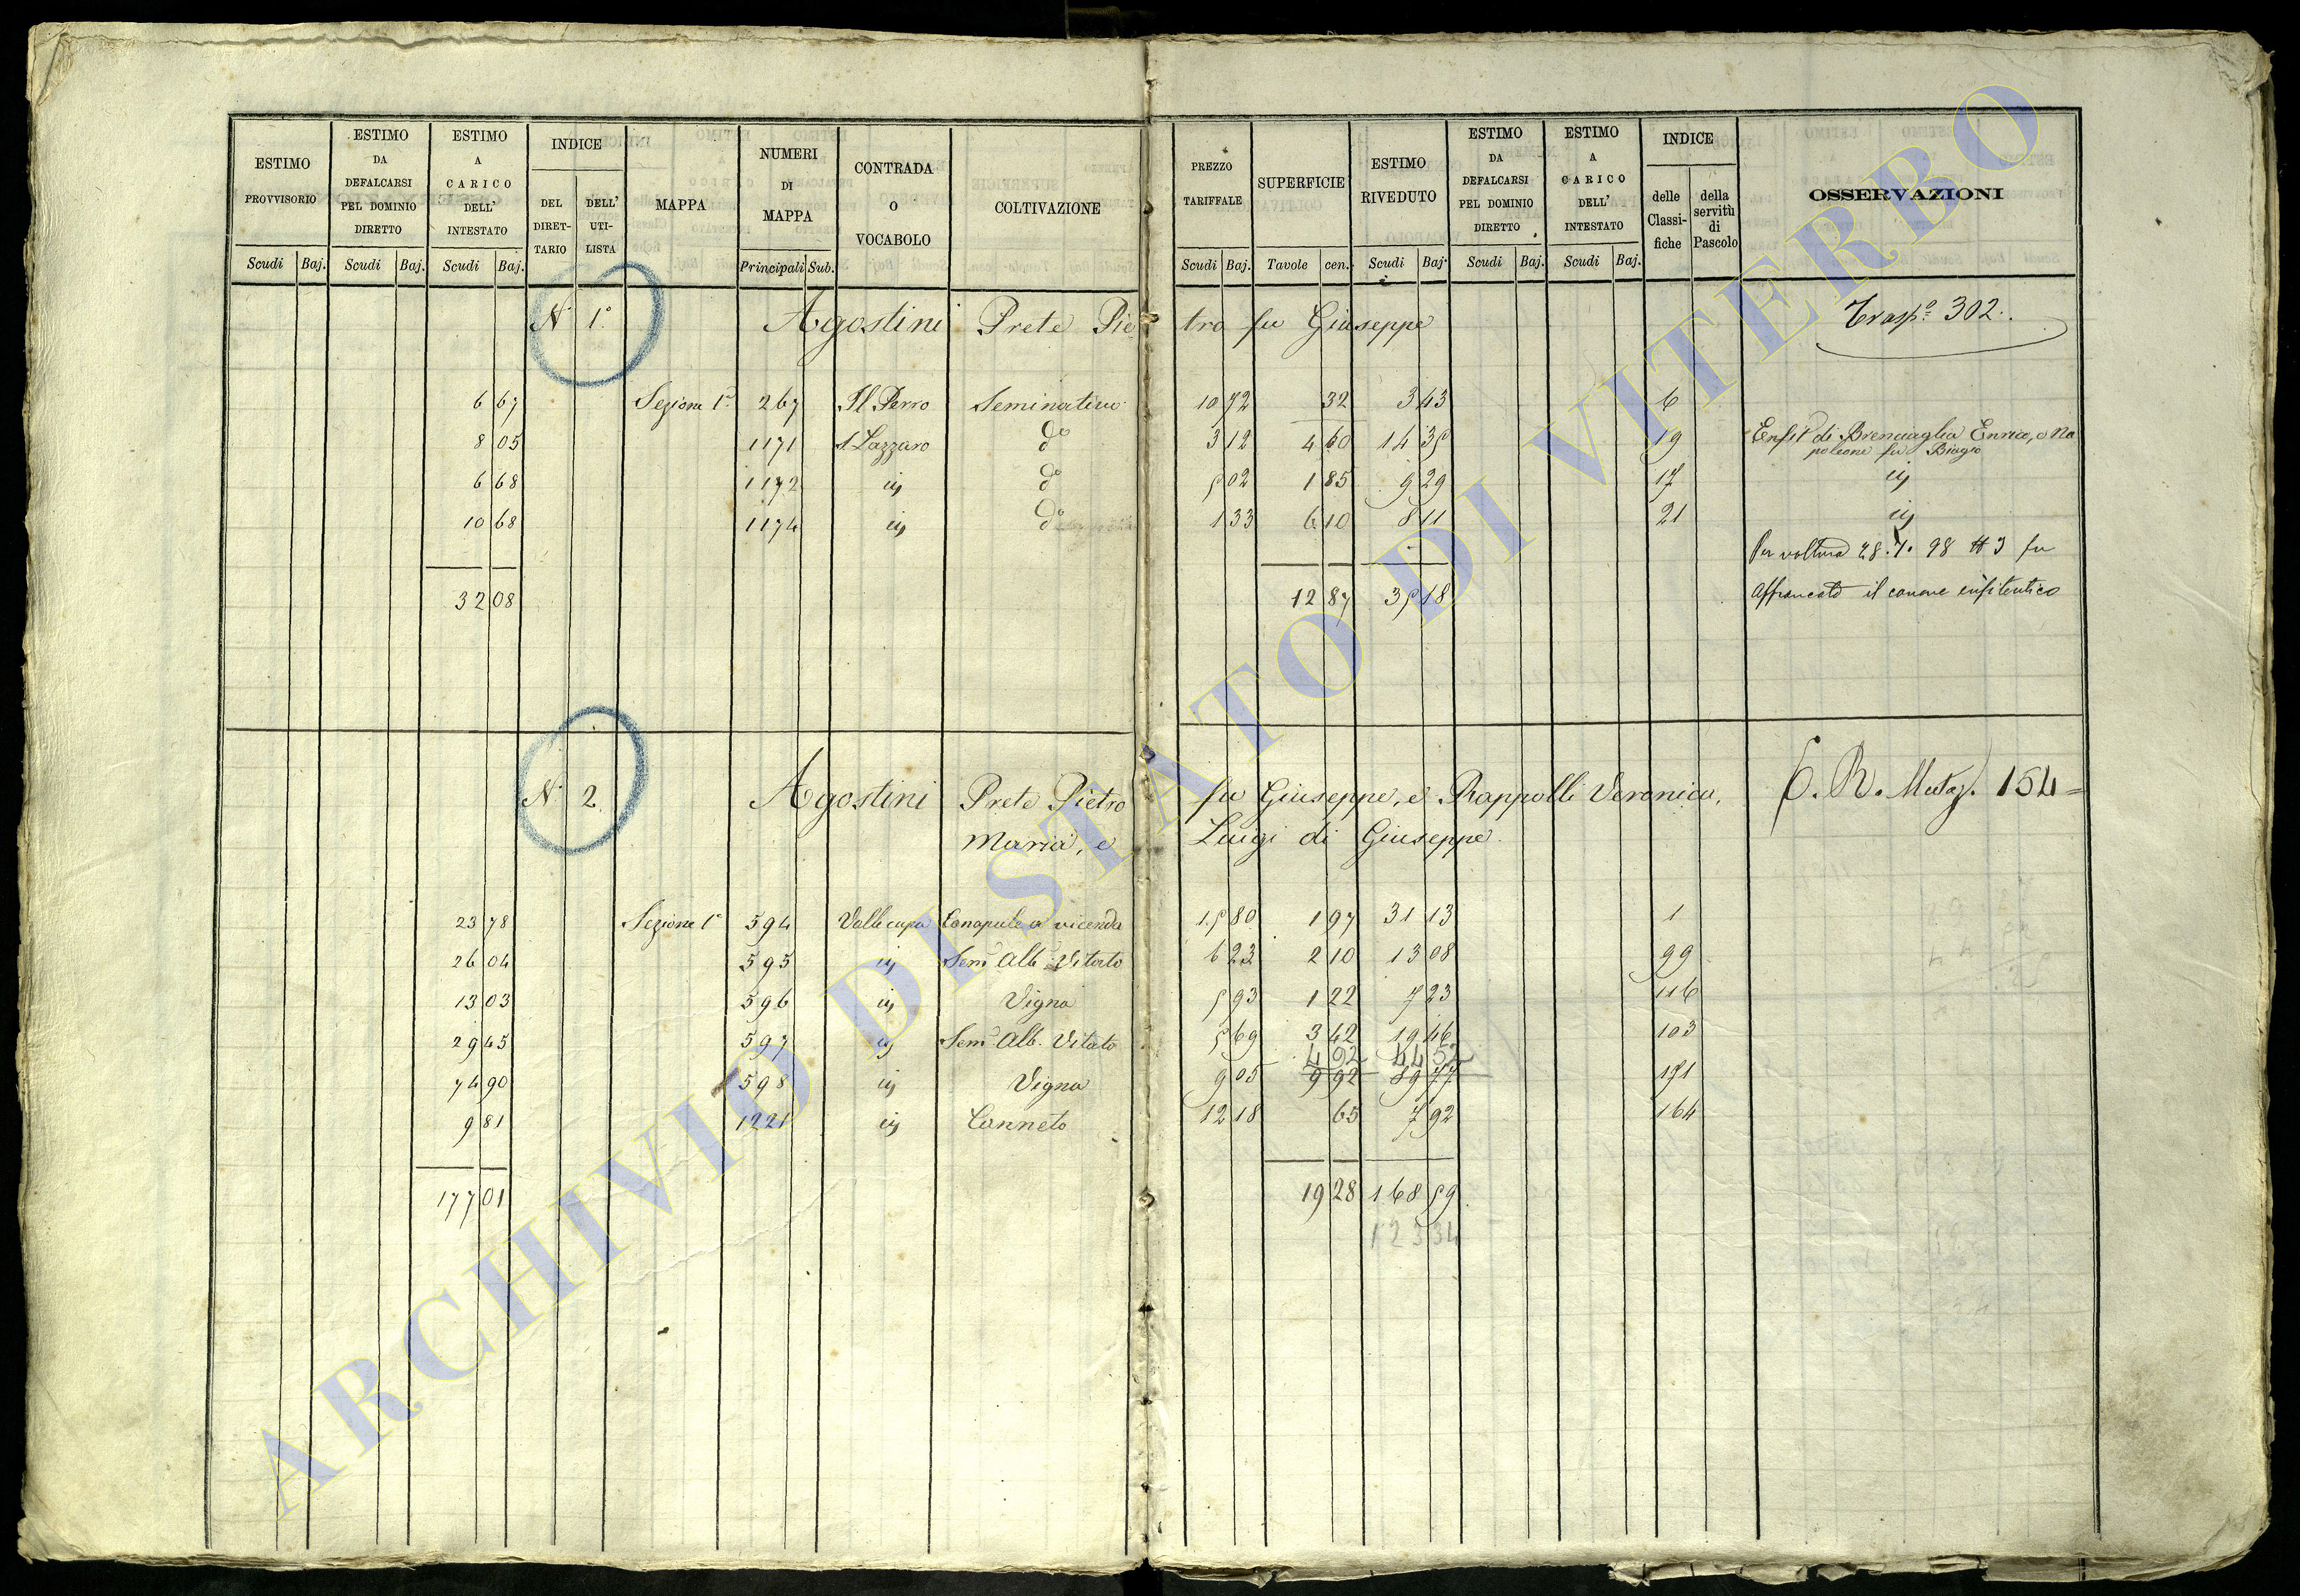 ESTIMO PROVVISORIO
ESTIMO DA DEFALCARSI PEL DOMINIO DIRETTO
ESTIMO A CARICO DELL' INTESTATO
INDICE
DEL DIRET- TARIO
DELL' UTI- LISTA
MAPPA
NUMERI DI MAPPA
CONTRADA O VOCABOLO
COLTIVAZIONE
PREZZO TARIFFALE
SUPERFICIE
ESTIMO RIVEDUTO
ESTIMO DA DEFALCARSI PEL DOMINIO DIRETTO
ESTIMO A CARICO DELL' INTESTATO
INDICE
delle Classi- fiche
della servitù di Pascolo
OSSERVAZIONI
Scudi Baj. Scudi Baj. Scudi Baj. Principali Sub. Scudi Baj. Tavole cen. Scudi Baj. Scudi Baj. Scudi Baj.
N. 1° Agostini Prete Pie tro fu Giuseppe Trasp° 302.
6 67 Sezione 1ª 267 Seminativo 10 72 32 3 43 6
8 05 1171 S. Lazzaro d° 3 12 4 60 14 35 19 di Brenciaglia Enrico, o Na
poleone fu Biagio
6 68 1172 d° 5 02 1 85 9 29 17
10 68 1174 d° 1 33 6 10 8 11 21
Per voltura 28. 7. 98 # 3 fu
32 08 12 87 35 18 affrancato il canone enfiteutico
N. 2. Agostini Prete Pietro fu Giuseppe, e Rappolli Veronica, C. R. 154
Maria, e Luigi di Giuseppe.
23 78 Sezione 1ª 594 Valle cupa Canapule a vicenda 15 80 1 97 31 13 1
26 04 595 Sem° Alb° Vitato 6 23 2 10 13 08 99
13 03 596 Vigna 5 93 1 22 7 23 116
29 45 597 Sem° Alb. Vitato 5 69 3 42 19 46 103
4 92 44 52
74 90 598 Vigna 9 05 9 92 89 77 171
9 81 1221 Canneto 12 18 65 7 92 164
177 01 19 28 168 59
123 34
ARCHIVIO DI STATO DI VITERBO